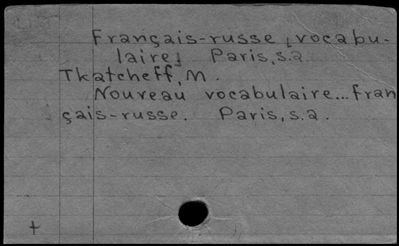 Français-russe [vocabu-
laire] Paris, s.a.
Tkatcheff, M.
Nouveau vocabulaire... fran
çais-russe. Paris, s.a.
+